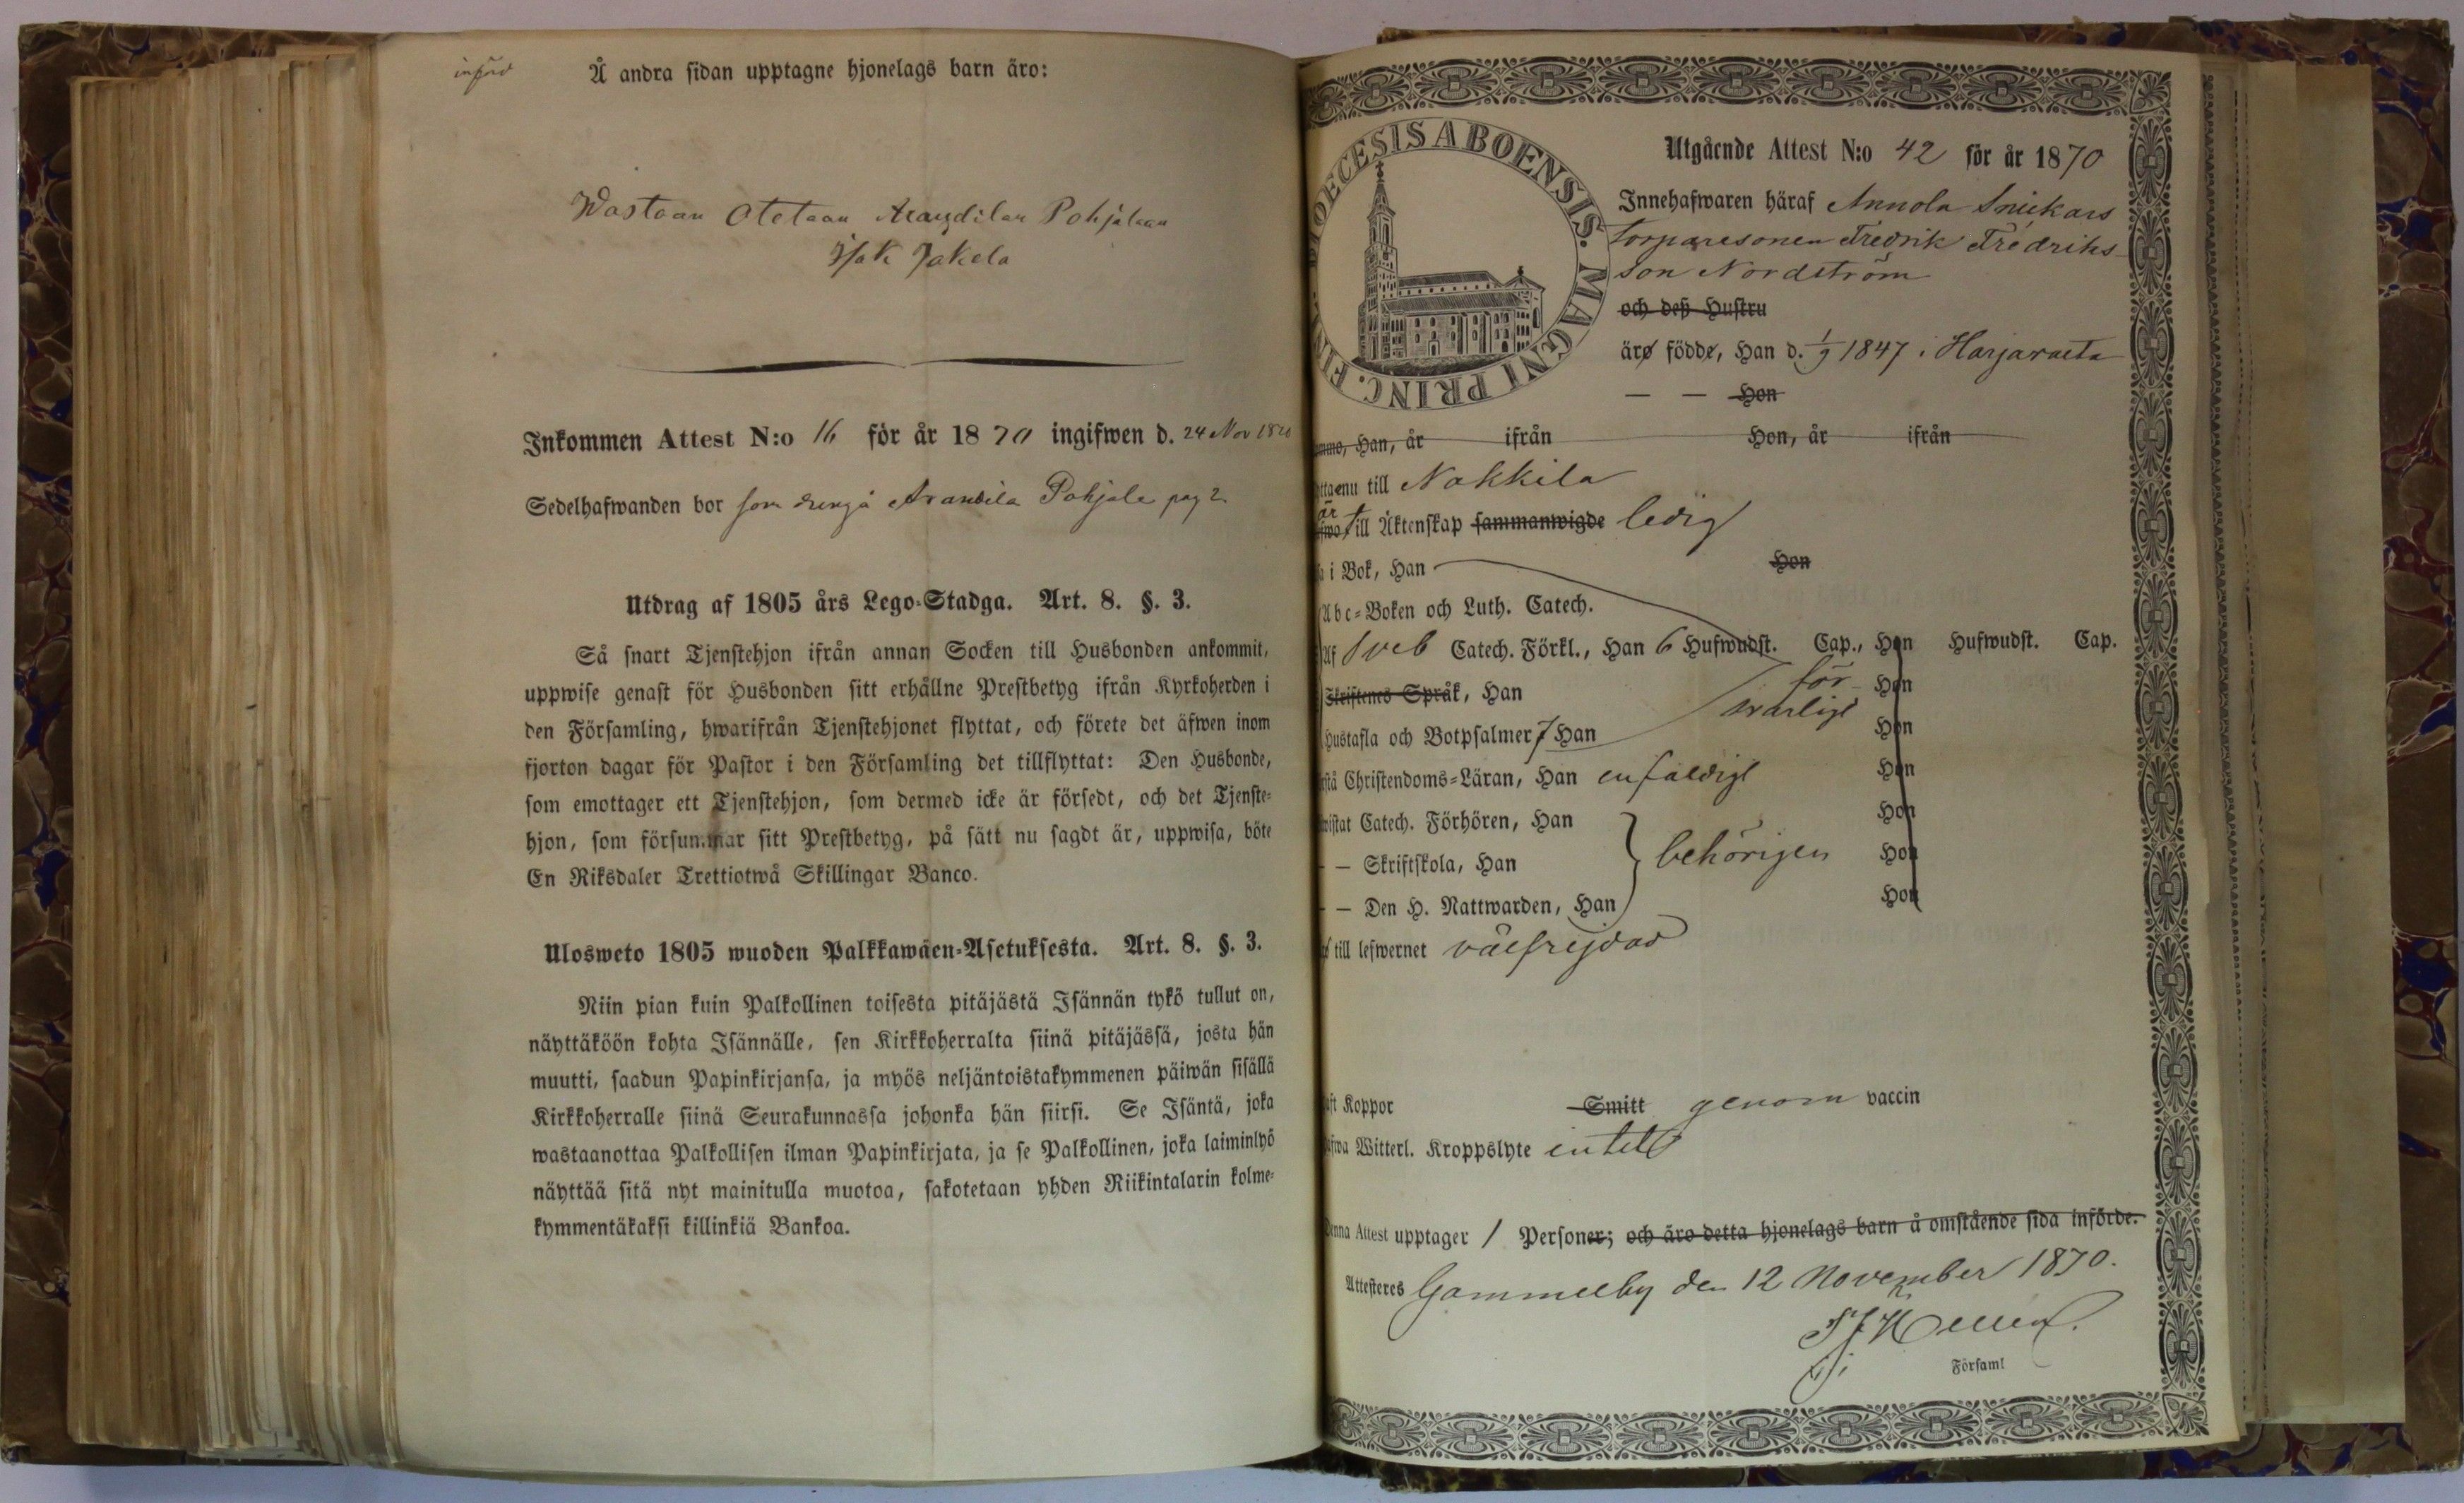 införd
Å andra sidan upptagne hjonelags barn äro:
Wastaan Otetaan Arandilan Pohjalaan
Isak Jakola
Inkommen Attest N:o 16 för år 1870 ingifwen d. 24 Nov 1870
Sedelhafwanden bor som dreng å Arandila Pohjala pag 2
Utdrag af 1805 års Lego-Stadga. Art. 8. §. 3.
Så snart Tjenstehjon ifrån annan Socken till Husbonden ankommit,
uppwise genast för Husbonden sitt erhållne Prestbetyg ifrån Kyrkoherden i
den Församling, hwarifrån Tjenstehjonet flyttat, och förete det äfwen inom
fjorton dagar för Pastor i den Församling det tillflyttat: Den Husbonde,
som emottager ett Tjenstehjon, som dermed icke är försedt, och det Tjenste-
hjon, som försummar sitt Prestbetyg, på sätt nu sagdt är, uppwisa, böte
En Riksdaler Trettiotwå Skillingar Banco.
Ulosweto 1805 wuoden Palkkawäen-Asetuksesta. Art. 8. §. 3.
Niin pian kuin Palkollinen toisesta pitäjästä Isännän tykö tullut on,
näyttäköön kohta Isännälle, sen Kirkkoherralta siinä pitäjässä, josta hän
muutti, saadun Papinkirjansa, ja myös neljäntoistakymmenen päiwän sisällä
Kirkkoherralle siinä Seurakunnassa johonka hän siirsi. Se Isäntä, joka
wastaanottaa Palkollisen ilman Papinkirjata, ja se Palkollinen, joka laiminlyö
näyttää sitä nyt mainitulla muotoa, sakotetaan yhden Riikintalarin kolme-
kymmentäkaksi killinkiä Bankoa.
DIOECESIS ABOENSIS. MAGNI PRINC. FIN
Utgående Attest N:o 42 för år 1870
Innehafwaren häraf Annola Snickars
torparesonen Fredrik Fredriks-
son Nordström
och deß Hustru
äro födde, Han d. 1/9 1847 i Harjavalta
— — Hon
Han, år ifrån Hon, år ifrån
nu till Nakkila
är
till Äktenskap sammanwigde ledig
i Bok, Han Hon
Abc-Boken och Luth. Catech.
Af Sveb Catech. Förkl., Han 6 Hufwudst. Cap., Hon Hufwudst. Cap.
Skriftenes Språk, Han för- Hon
svarligt
Hustafla och Botpsalmer 7 Han Hon
Christendoms-Läran, Han enfaldigt Hon
Catech. Förhören, Han Hon
— Skriftskola, Han behörigen Hon
— Den H. Nattwarden, Han Hon
till lefwernet välfrejdad
Koppor Smitt genom vaccin
Witterl. Kroppslyte intet
Denna Attest upptager 1 Personer; och äro detta hjonelags barn å omstående sida införde.
Attesteres Gammelby den 12 November 1870.
Församl